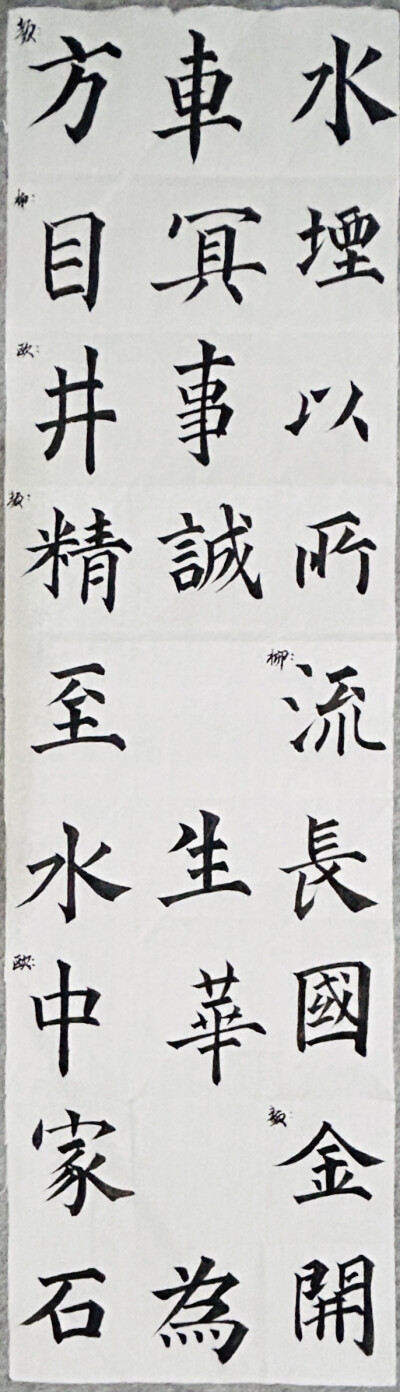 颜: 方 車 水
柳: 目 堙
欧: 井 事 以
颜: 精 誠 所
至 柳: 流
水 生 長
欧: 中 華 國
家 颜: 金
石 為 開